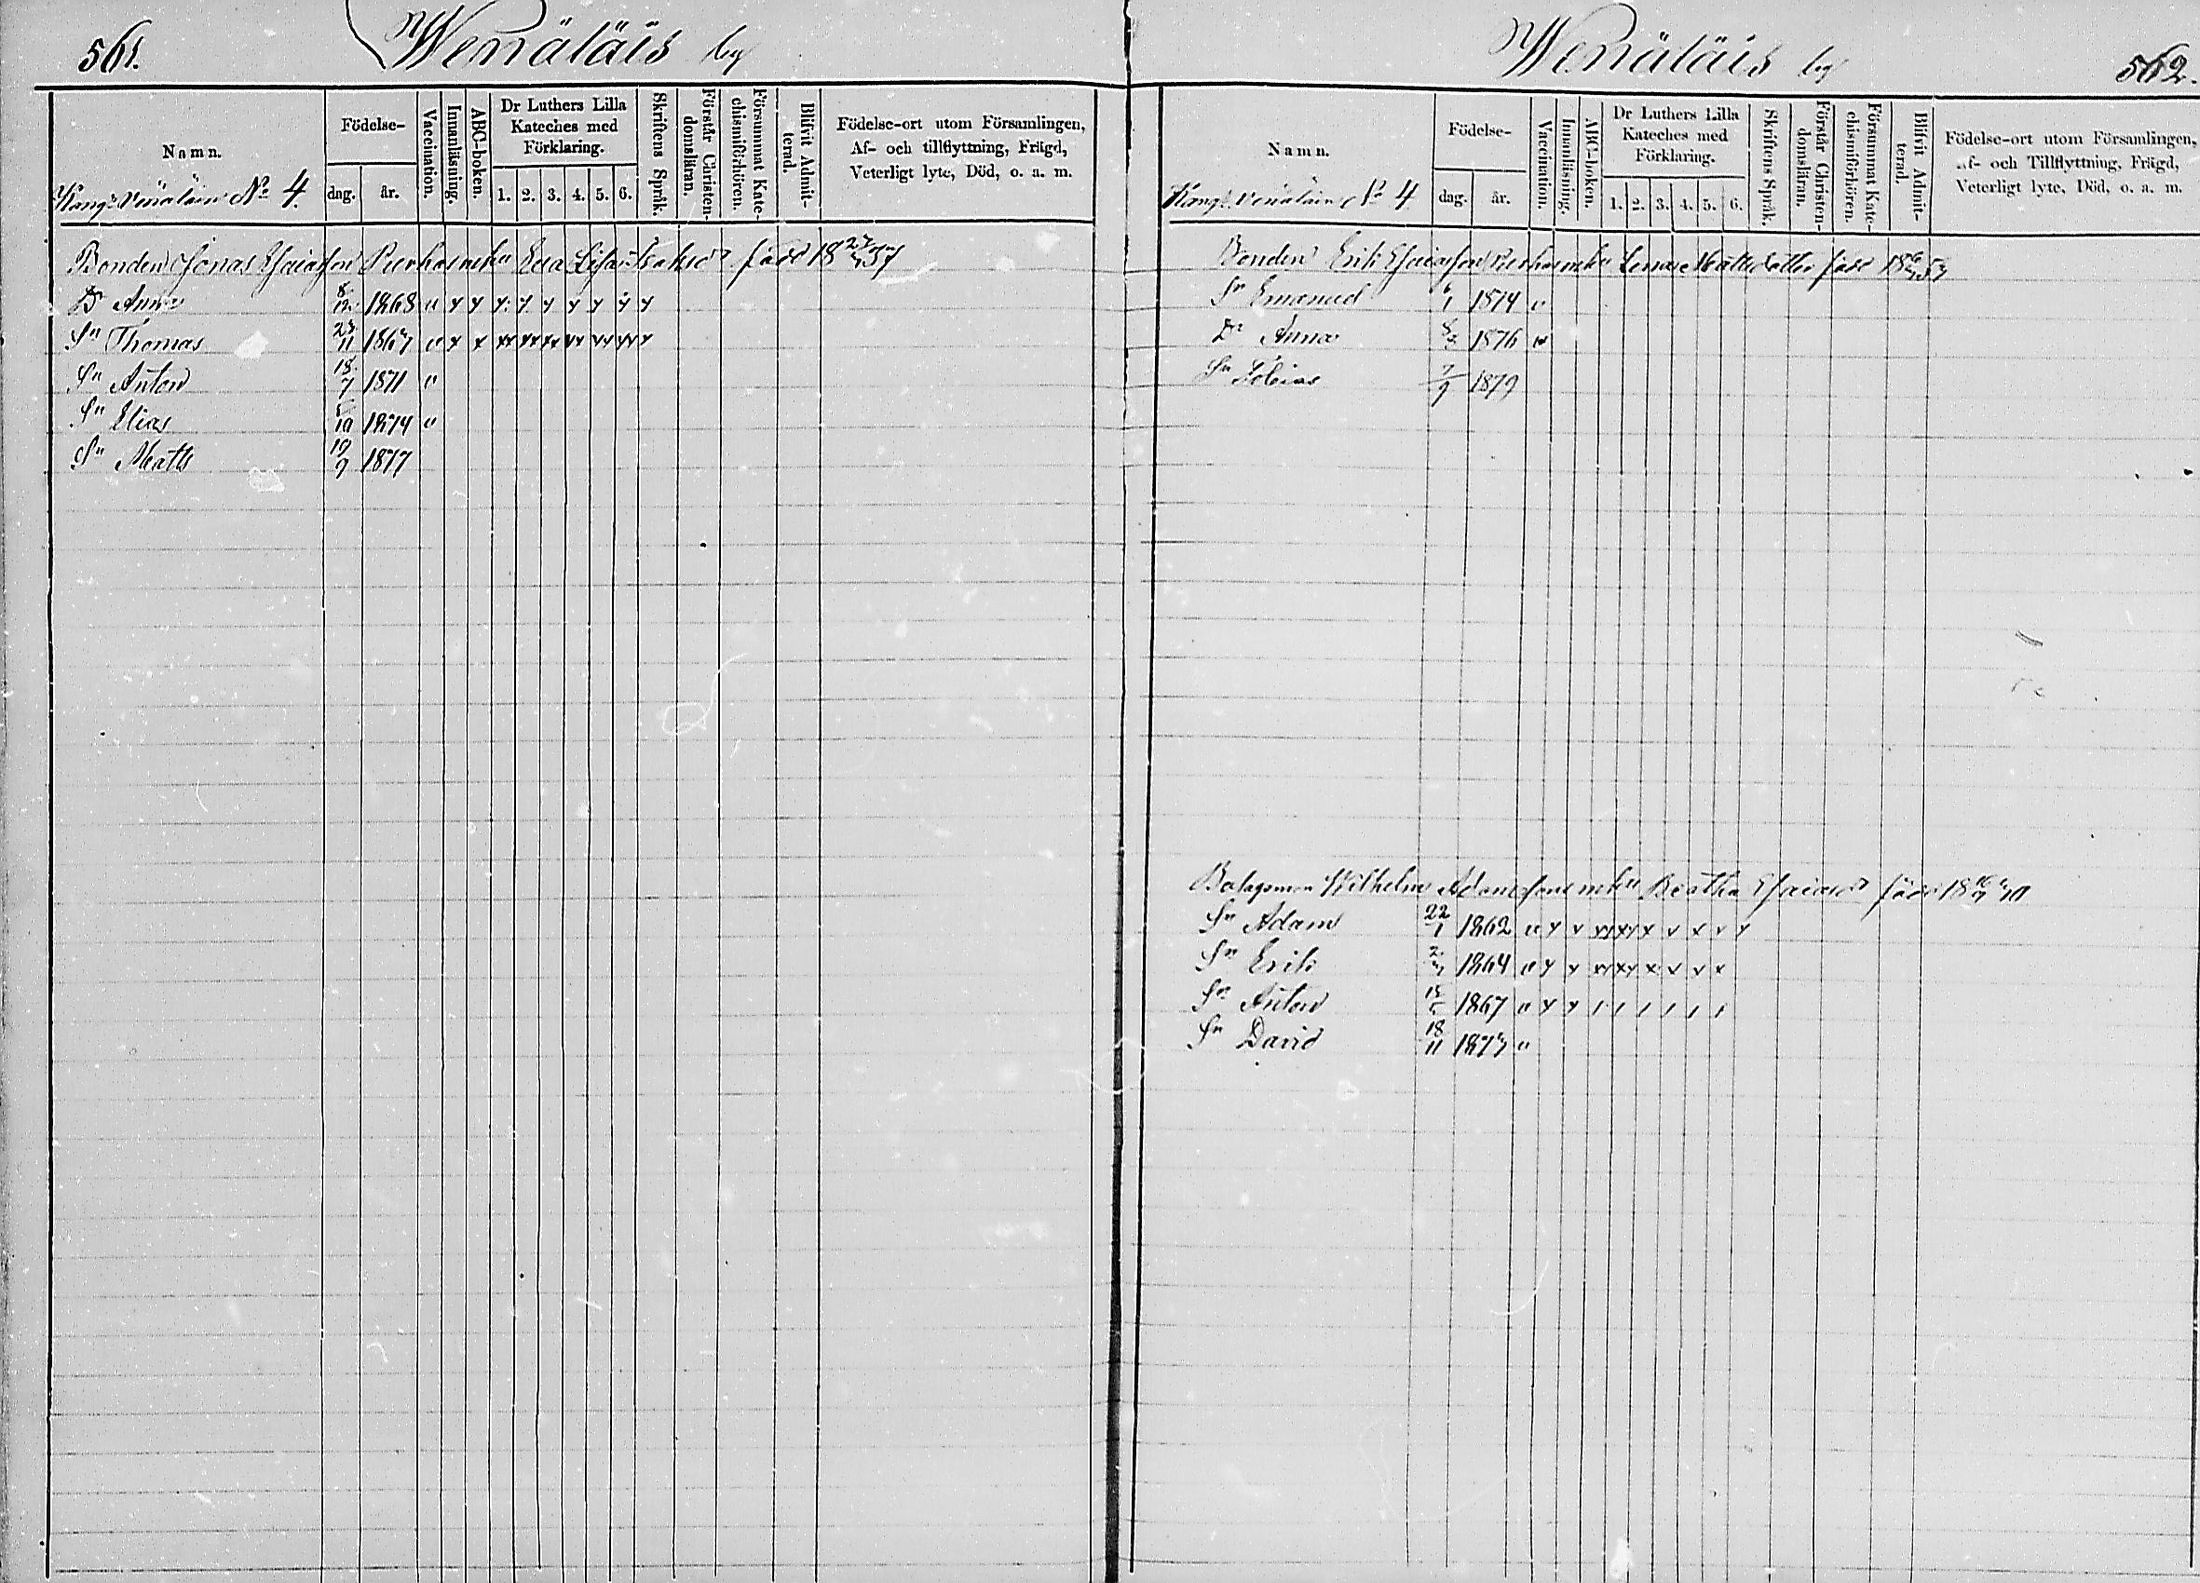 561.
Wenäläis by
Namn.
Kangs Venäläin No 4.
Födelse-
dag.
år.
Vaccination.
Innanläsning.
ABC-boken.
Dr Luthers Lilla
Kateches med
Förklaring.
1. 2. 3. 4. 5. 6.
Skriftens Språk.
Förstår Christen-
domsläran.
Försummat Kate-
chismiförhören.
Blifvit Admit-
terad.
Födelse-ort utom Församlingen,
Af- och tillflyttning, Frägd,
Veterligt lyte, Död, o. a. m.
Bonden Jonas Esaiasson
Dr Anna 8/12 1868
Sn Thomas 23/11 1867
Sn Anton 18/7 1871
Sn Elias 10 1874
Sn Matts 19/9 1877
Wenäläis by
562.
Namn.
Kangs Venäläin No 4
Födelse-
dag.
år.
Vaccination.
Innanläsning.
ABC-boken.
Dr Luthers Lilla
Kateches med
Förklaring.
1. 2. 3. 4. 5. 6.
Skriftens Språk.
Förstår Christen-
domsläran.
Försummat Kate-
chismiförhören.
Blifvit Admit-
terad.
Födelse-ort utom Församlingen,
Af- och Tillflyttning, Frägd,
Veterligt lyte, Död, o. a. m.
Bonden Erik Esaiasson Lena Mattsdotter född
Sn Emanuel 6/1 1874
Dr Anna 8/3 1876
Sn Tobias 7/9 1879
Bolagsman Wilhelm Adamsson Beatha Esaiasdr född
Sn Adam 22/1 1862
Sn Erik 1864
Sn Anton 1867
Sn David 18/11 1873